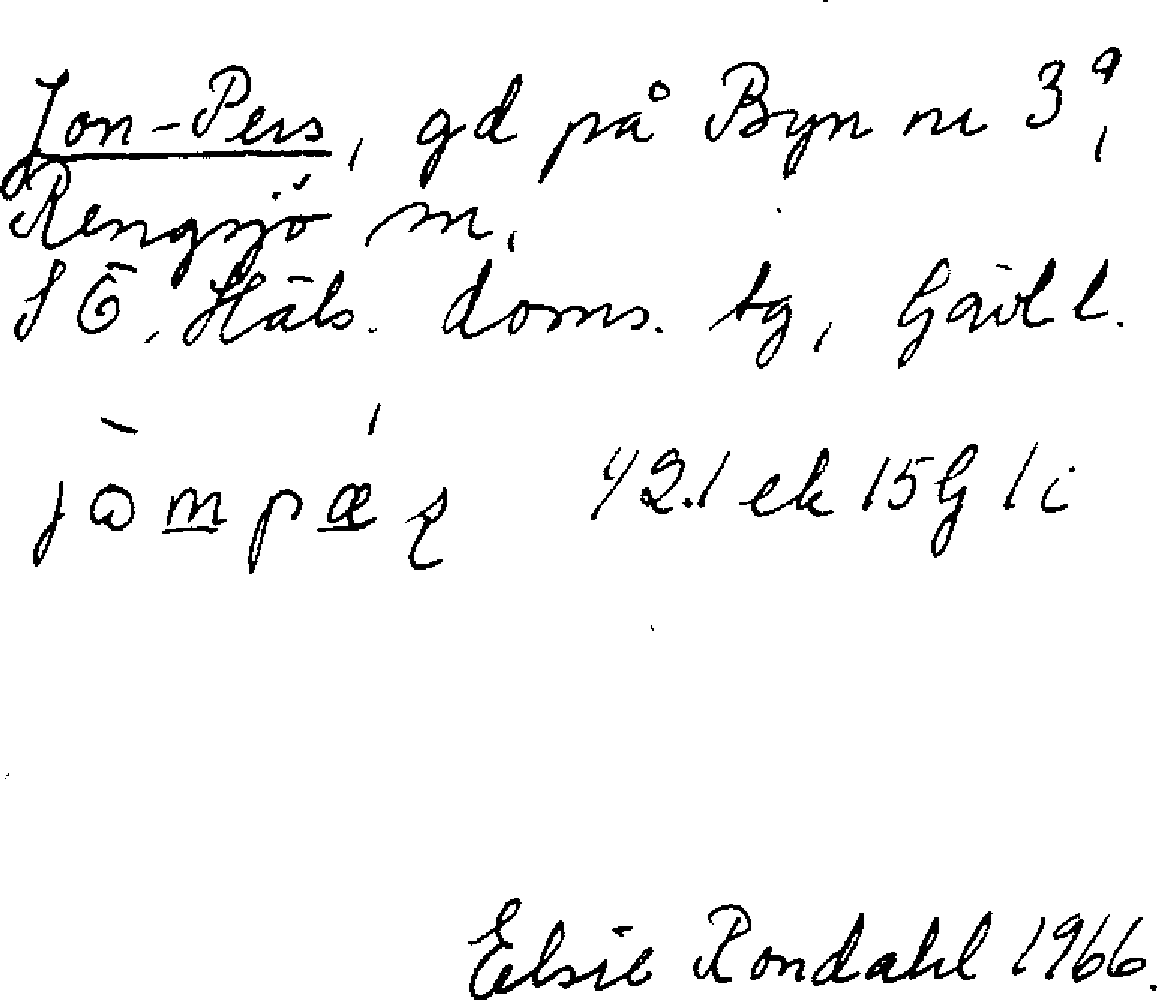 Jon-Pers, gd på Byn nr 3⁹,
Rengsjö sn,
SÖ. Häls. doms. tg, Gävl l.
jòmpǽʂ 42.1 ek 15G 1i
Elsie Rondahl 1966.